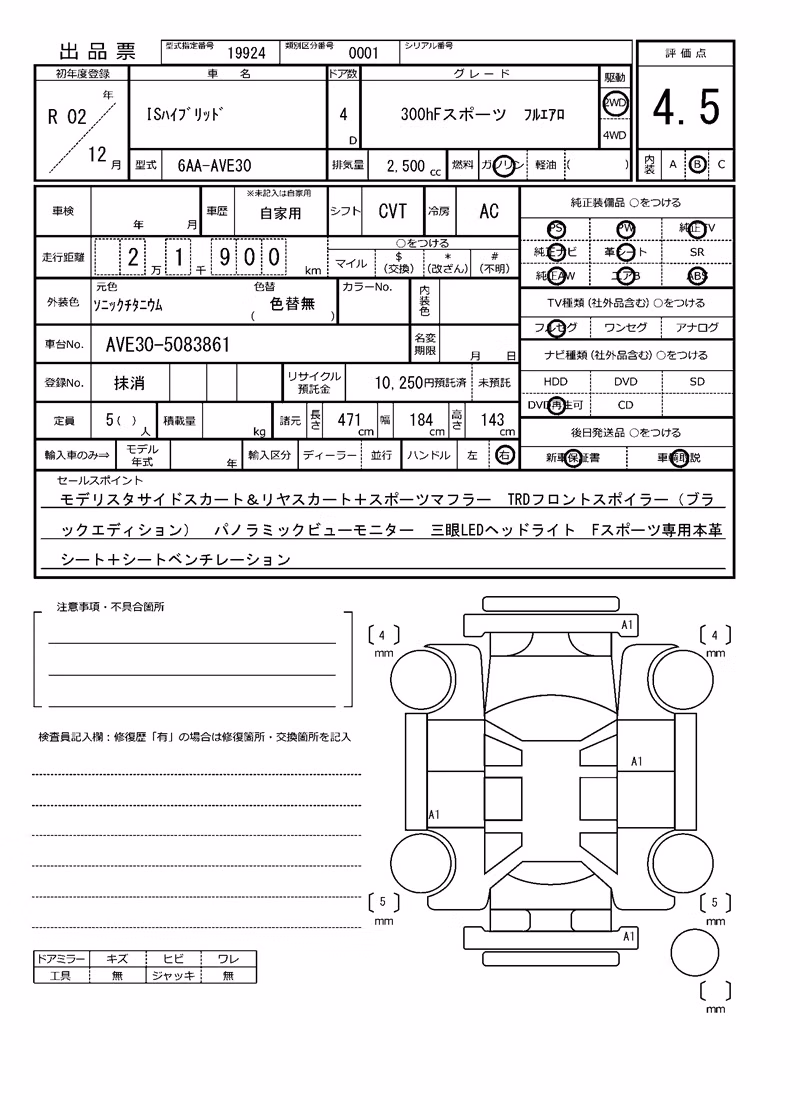 出品票 型式指定番号 19924 類別区分番号 0001 シリアル番号
評価点
4.5
内装 A B C
初年度登録 車名 ドア数 グレード 駆動
R 02 年 12 月 ISﾊｲﾌﾞﾘｯﾄﾞ 4 D 300hFスポーツ ﾌﾙｴｱﾛ 2WD
4WD
型式 6AA-AVE30 排気量 2,500 cc 燃料 ガソリン 軽油 ( )
車検 年 月 車歴 ※未記入は自家用 自家用 シフト CVT 冷房 AC
走行距離 2 万 1 千 9 0 0 km ○をつける
マイル $ (交換) * (改ざん) # (不明)
外装色 元色 ｿﾆｯｸﾁﾀﾆｳﾑ 色替 ( 色替無 ) カラーNo. 内装色
車台No. AVE30-5083861 名変期限 月 日
登録No. 抹消 リサイクル預託金 10,250円預託済 未預託
定員 5( ) 人 積載量 kg 諸元 長さ 471 cm 幅 184 cm 高さ 143 cm
輸入車のみ⇒ モデル年式 年 輸入区分 ディーラー 並行 ハンドル 左 右
純正装備品 ○をつける
PS PW 純正TV
純正ナビ 革シート SR
純正AW エアB ABS
TV種類（社外品含む）○をつける
フルセグ ワンセグ アナログ
ナビ種類（社外品含む）○をつける
HDD DVD SD
DVD再生可 CD
後日発送品 ○をつける
新車保証書 車輌取説
セールスポイント
モデリスタサイドスカート＆リヤスカート＋スポーツマフラー TRDフロントスポイラー（ブラ
ックエディション） パノラミックビューモニター 三眼LEDヘッドライト Fスポーツ専用本革
シート＋シートベンチレーション
注意事項・不具合箇所
検査員記入欄：修復歴「有」の場合は修復箇所・交換箇所を記入
ドアミラー キズ ヒビ ワレ
工具 無 ジャッキ 無
A1
4 mm
4 mm
A1
A1
5 mm
5 mm
A1
mm